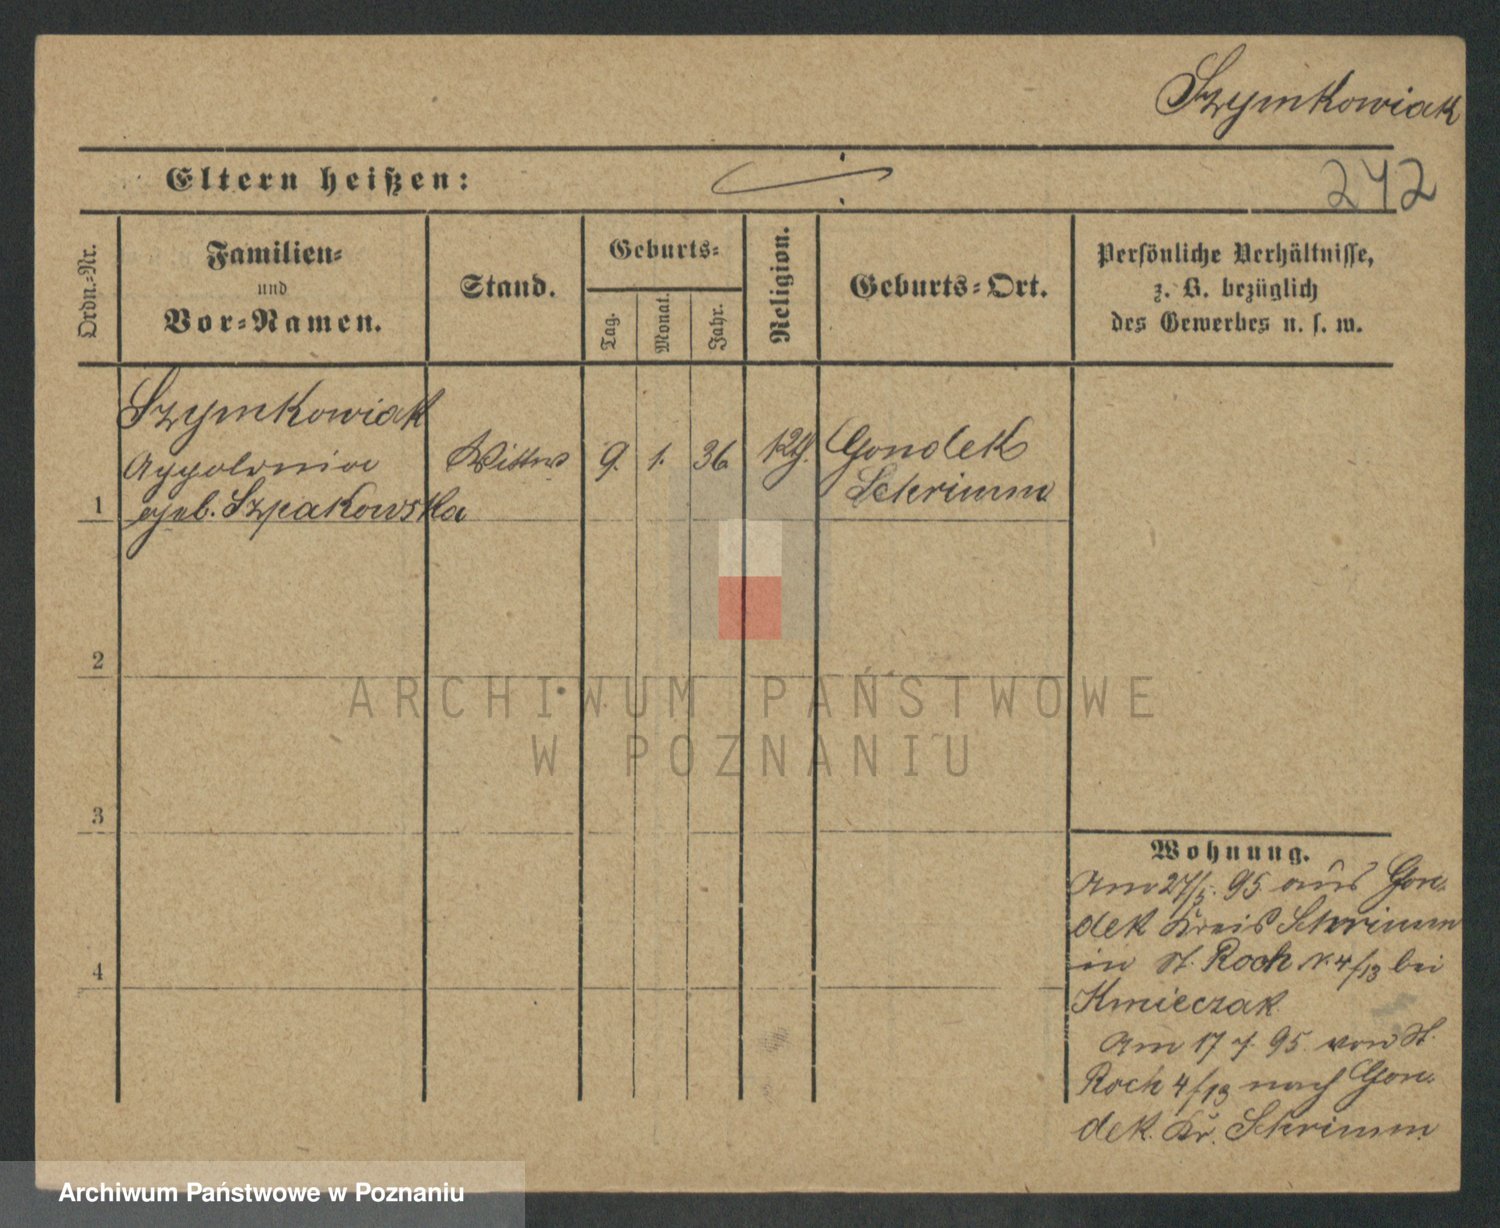 Szymkowiak
Eltern heißen:
242
Ordn.-Nr.
Familien-
und
Vor-Namen.
Stand.
Geburts-
Tag.
Monat.
Jahr.
Religion.
Geburts-Ort.
Persönliche Verhältnisse,
z. B. bezüglich
des Gewerbes u. s. w.
1
Szymkowiak
Appolonia
geb. Szpakowska
Wittwe
9. 1. 36
Kth.
Gondek
Schrimm
2
3
4
Wohnung.
Am 27/5. 95 aus Gon-
dek Kreis Schrimm
in St. Roch N. 4/13 bei
Kmieczak
Am 17 7. 95 von St.
Roch 4/13 nach Gon-
dek. Kr. Schrimm
ARCHIWUM PAŃSTWOWE
W POZNANIU
Archiwum Państwowe w Poznaniu